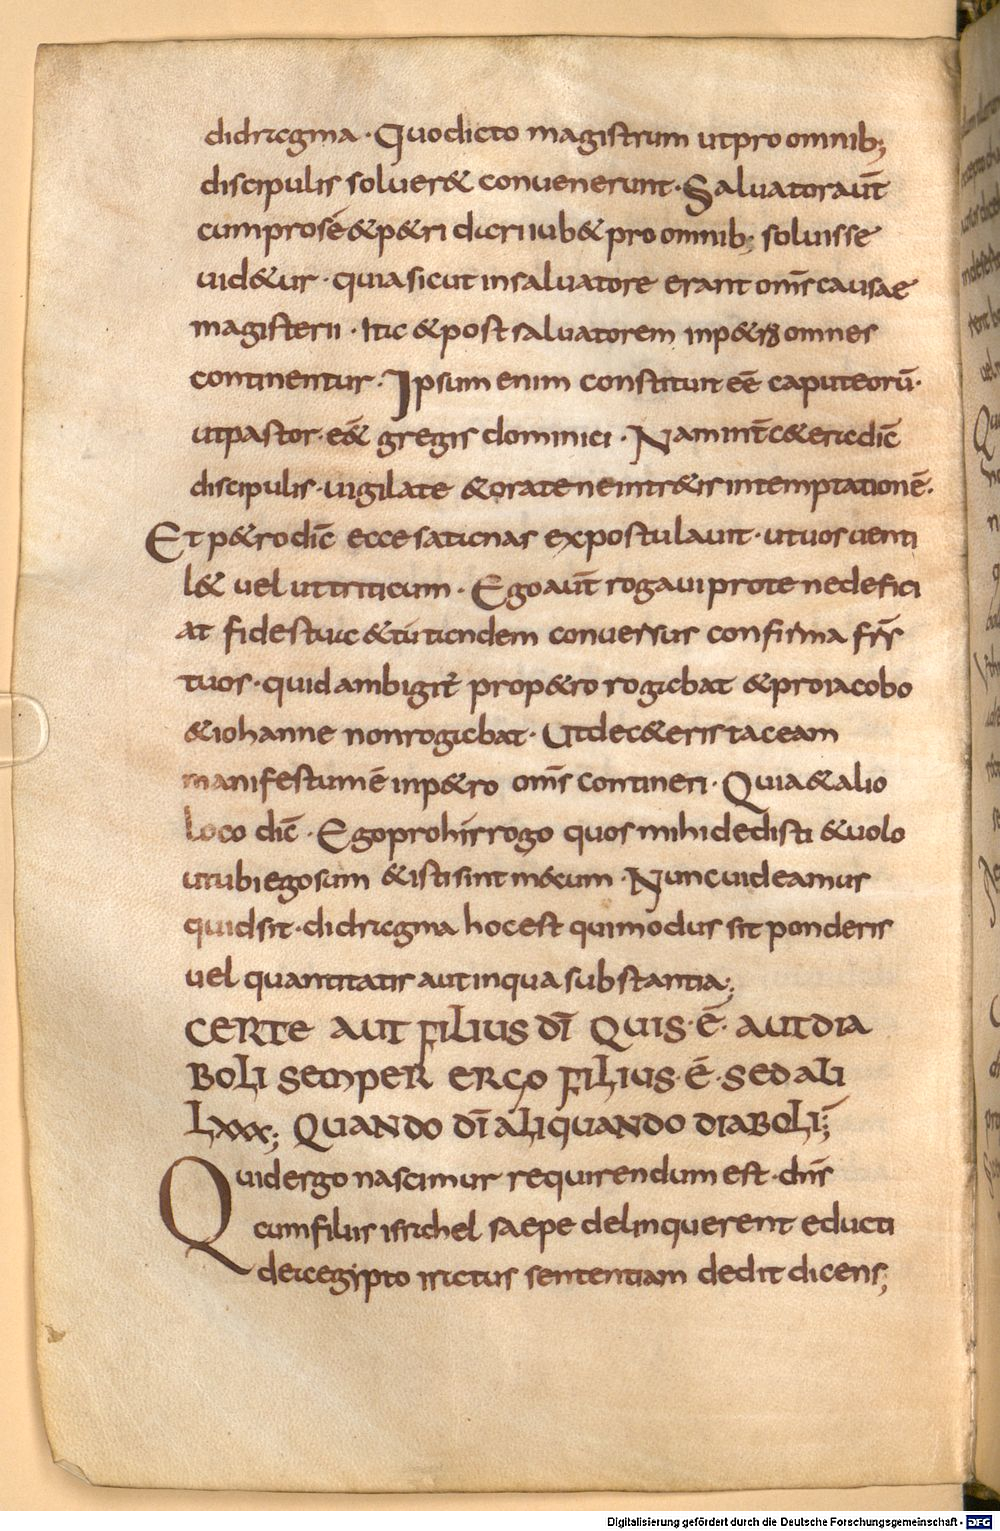 didragma · Quo dicto magistrum ut pro omnib;
discipulis soluer& conuenerunt · Saluator aut̄
cum pro se & p&ri dari iub& pro omnib; soluisse
uid&ur · quia sicut in saluatore erant om̄s causae
magisterii · ita & post saluatorem in p&ro omnes
continentur · Ipsum enim constituit eē caput eorū ·
ut pastor · ēe& gregis dominici · Nam int̄ c&era dic̄
discipulis · uigilate & orate ne intr&is in temptationē ·
Et p&ro dic̄ ecce satanas expostulauit · ut uos uenti
l& uel ut triticum · Ego aut̄ rogaui pro te ne defici
at fides tua & tu tandem conuersus confirma fr̄s
tuos · quid ambigit̄ pro p&ro rogabat & pro iacobo
& iohanne non rogabat · Ut de c&eris taceam
manifestum ē in p&ro om̄s contineri · Quia & alio
loco dic̄ · Ego pro his rogo quos mihi dedisti & uolo
ut ubi ego sum & isti sint mecum · Nunc uideamus
quid sit · didragma hoc est qui modus sit ponderis
uel quantitatis aut in qua substantia;
CERTE AUT FILIUS DĪ QUIS · Ē · AUT DIA
BOLI SEMPER ERGO FILIUS · Ē · SED ALI
LXXX; QUANDO DĪ ALIQUANDO DIABOLI;
Quid ergo nascimur requirendum est · dn̄s
cum filius israhel saepe delinquerent educti
de aegipto iratus sententiam dedit dicens;
Digitalisierung gefördert durch die Deutsche Forschungsgemeinschaft - DFG